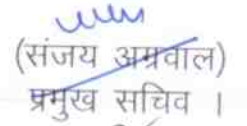 (संजय अग्रवाल)
प्रमुख सचिव ।